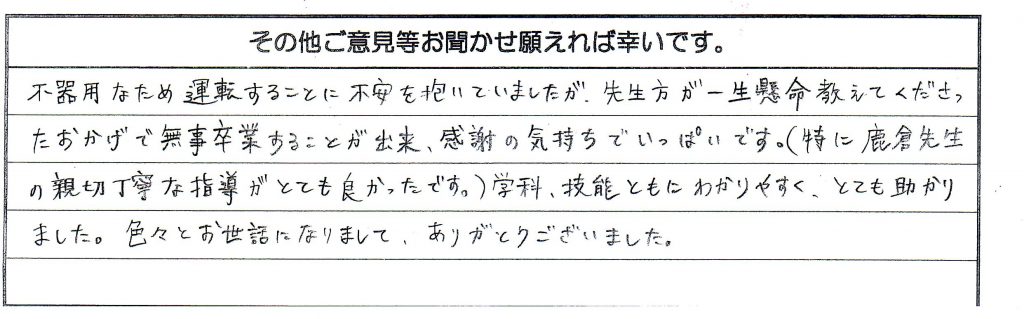 その他ご意見等お聞かせ願えれば幸いです。
不器用なため運転することに不安を抱いていましたが、先生方が一生懸命教えてくださっ
たおかげで無事卒業することが出来、感謝の気持ちでいっぱいです。(特に鹿倉先生
の親切丁寧な指導がとても良かったです。)学科、技能ともにわかりやすく、とても助かり
ました。色々とお世話になりまして、ありがとうございました。